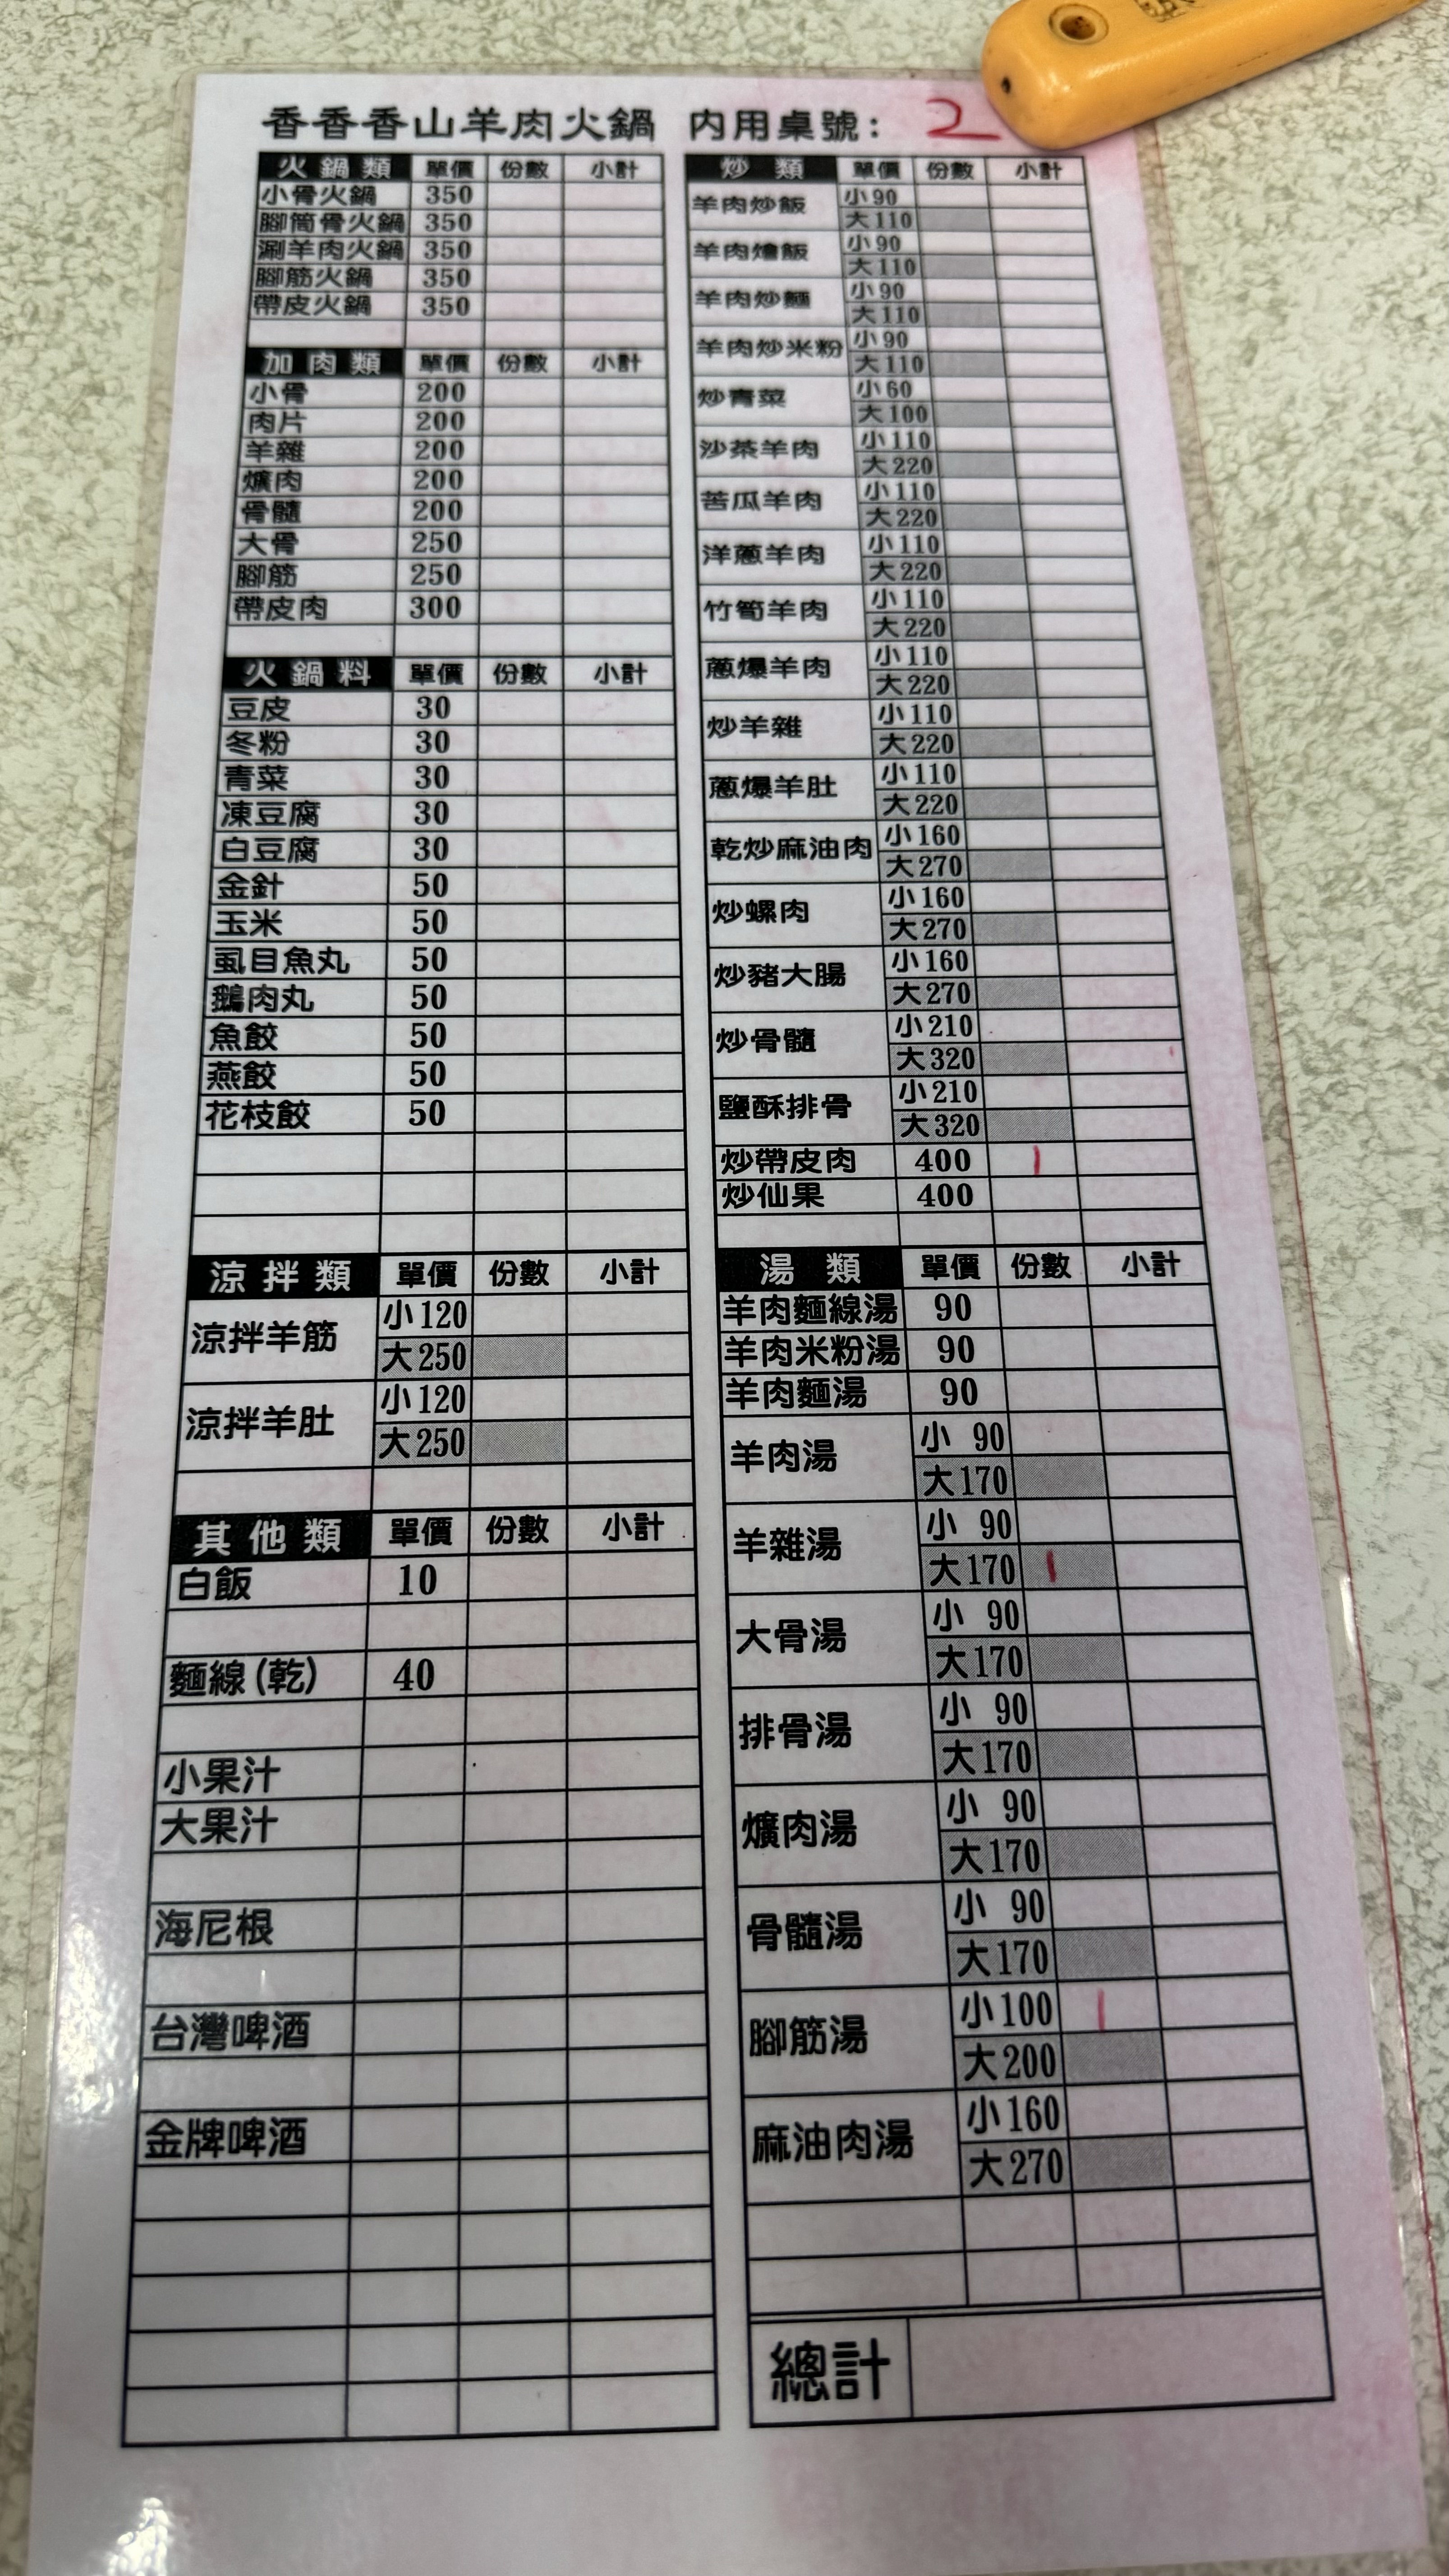 香香香山羊肉火鍋 內用桌號： 2
火鍋類 單價 份數 小計
小骨火鍋 350
腳筒骨火鍋 350
涮羊肉火鍋 350
腳筋火鍋 350
帶皮火鍋 350
加肉類 單價 份數 小計
小骨 200
肉片 200
羊雜 200
爌肉 200
骨髓 200
大骨 250
腳筋 250
帶皮肉 300
火鍋料 單價 份數 小計
豆皮 30
冬粉 30
青菜 30
凍豆腐 30
白豆腐 30
金針 50
玉米 50
虱目魚丸 50
鵝肉丸 50
魚餃 50
燕餃 50
花枝餃 50
涼拌類 單價 份數 小計
涼拌羊筋 小120
大250
涼拌羊肚 小120
大250
其他類 單價 份數 小計
白飯 10
麵線(乾) 40
小果汁
大果汁
海尼根
台灣啤酒
金牌啤酒
炒類 單價 份數 小計
羊肉炒飯 小90
大110
羊肉燴飯 小90
大110
羊肉炒麵 小90
大110
羊肉炒米粉 小90
大110
炒青菜 小60
大100
沙茶羊肉 小110
大220
苦瓜羊肉 小110
大220
洋蔥羊肉 小110
大220
竹筍羊肉 小110
大220
蔥爆羊肉 小110
大220
炒羊雜 小110
大220
蔥爆羊肚 小110
大220
乾炒麻油肉 小160
大270
炒螺肉 小160
大270
炒豬大腸 小160
大270
炒骨髓 小210
大320
鹽酥排骨 小210
大320
炒帶皮肉 400 1
炒仙果 400
湯類 單價 份數 小計
羊肉麵線湯 90
羊肉米粉湯 90
羊肉麵湯 90
羊肉湯 小 90
大170
羊雜湯 小 90
大170 1
大骨湯 小 90
大170
排骨湯 小 90
大170
爌肉湯 小 90
大170
骨髓湯 小 90
大170
腳筋湯 小100 1
大200
麻油肉湯 小160
大270
總計